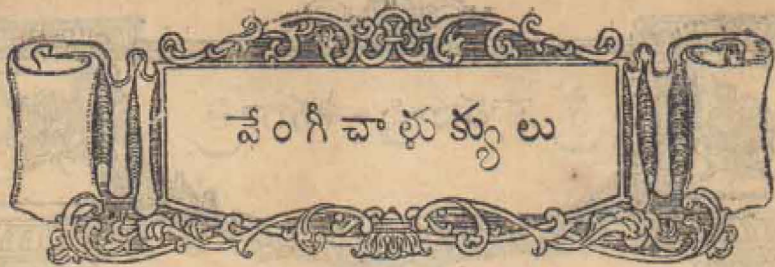 వేంగీచాళుక్యులు